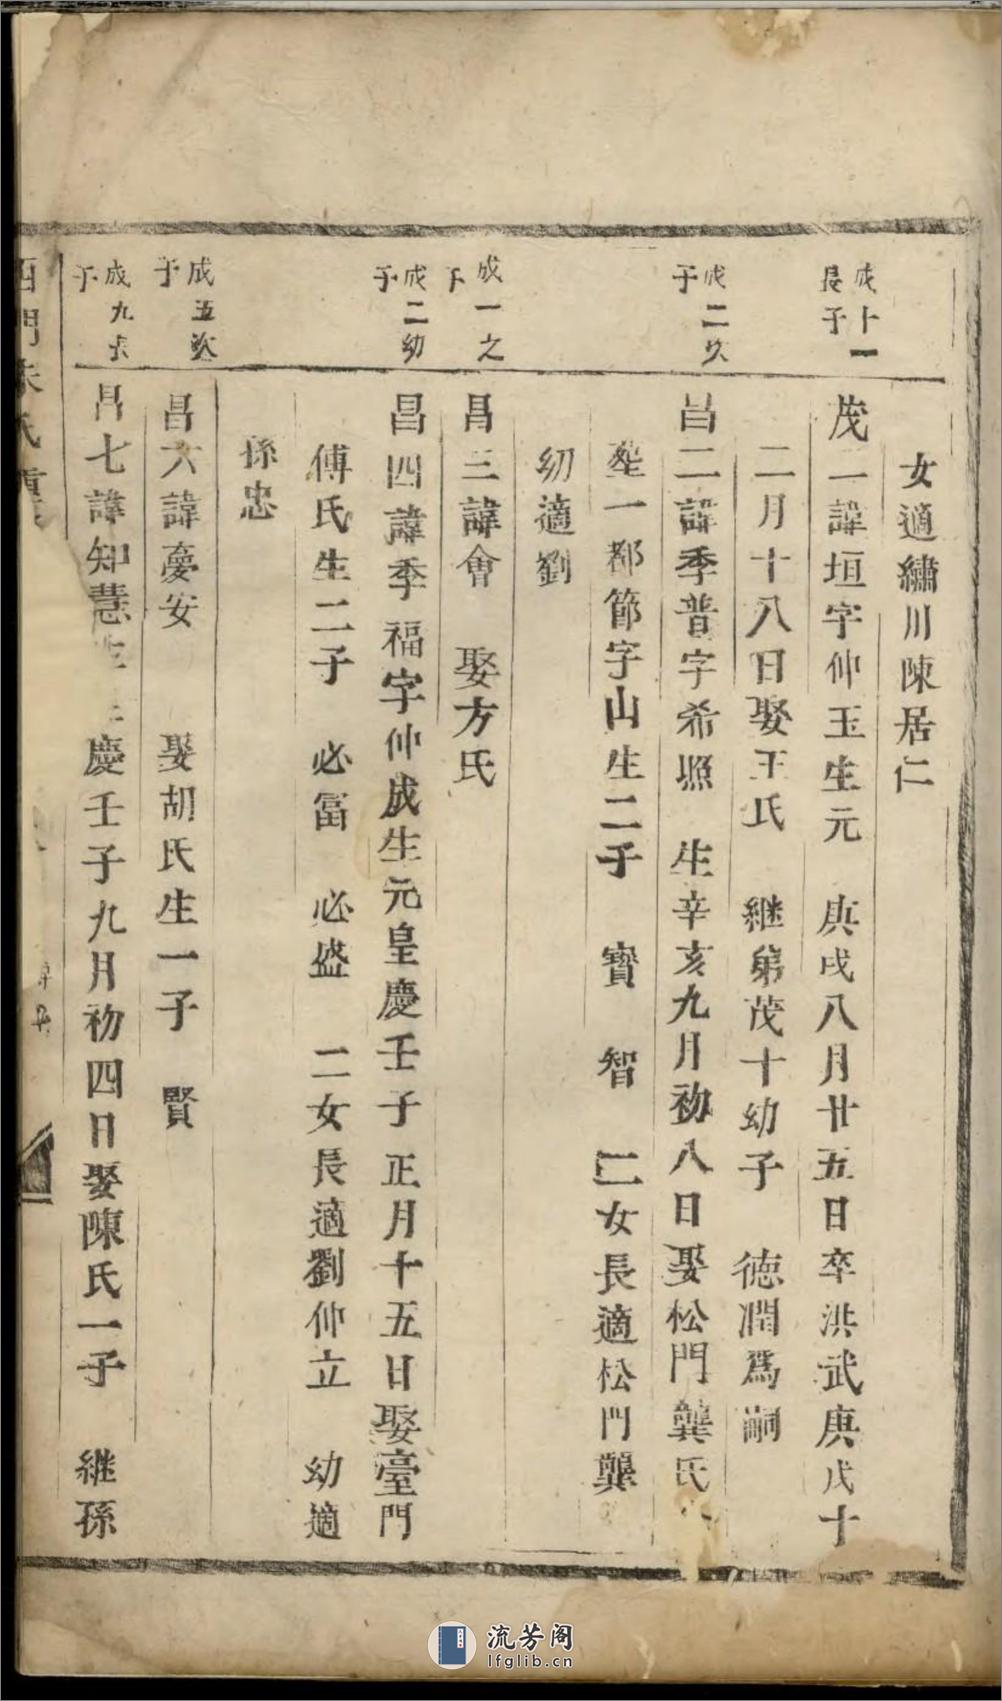 女適繡川陳居仁
成十一
長子
茂二諱垣字仲玉生元 庚戌八月廿五日卒洪武庚戌十
二月十八日娶王氏 継弟茂十幼子 德潤爲嗣
成二次
子
昌二諱季普字希照 生辛亥九月初八日娶松門龔氏
一都節字山生二子 寳 智 二女長適松門龔
幼適劉
成一之
子
昌三諱會 娶方氏
成二幼
子
昌四諱季福字仲成生元皇慶壬子正月十五日娶臺門
傅氏生二子 必富 必盛 二女長適劉仲立 幼適
孫忠
成五次
子
昌六諱慶安 娶胡氏生一子 賢
成九長
子
昌七諱知慧生 慶壬子九月初四日娶陳氏一子 継孫
西門朱氏重
流芳阁
lfglib.cn